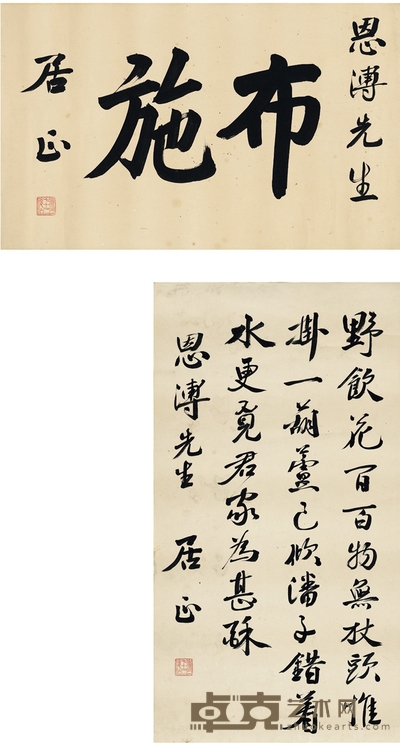 恩溥先生
布施
居正
野飲花間百物無杖頭惟
掛一葫蘆已傾潘子錯着
水更覓君家為甚酥
恩溥先生 居正
卓克艺术网
zhuokearts.com